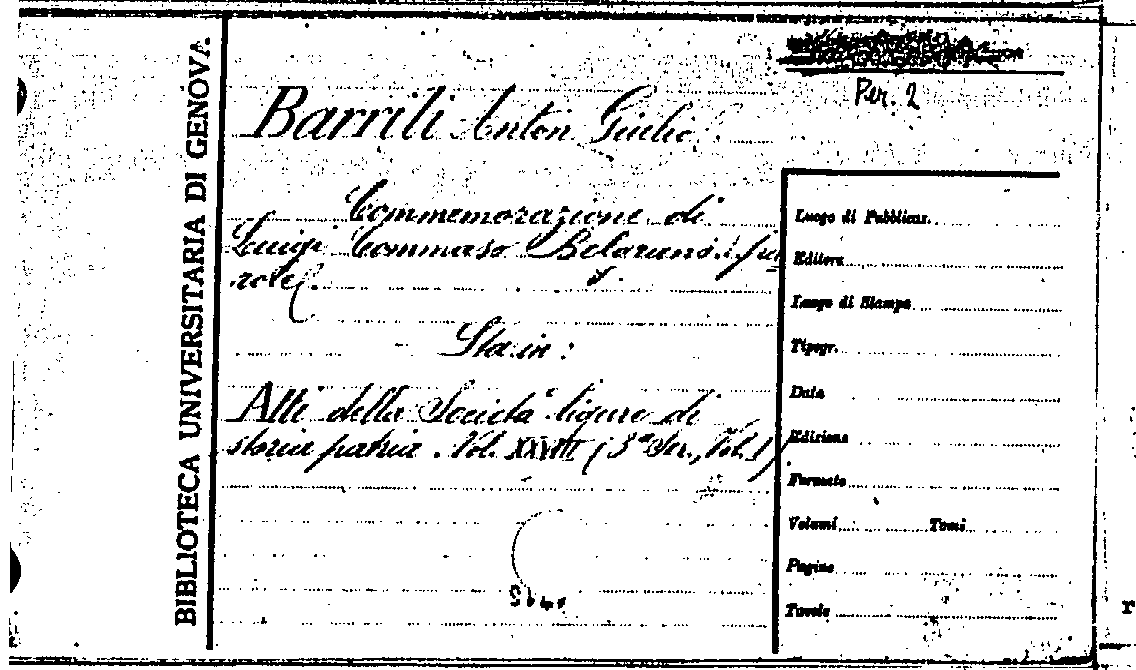 BIBLIOTECA UNIVERSITARIA DI GENOVA
Per. 2
Barrili Anton Giulio.
Commemorazione di
Luigi Tommaso Belgrano. [Pa
role].
Sta in:
Atti della Società ligure di
storia patria. Vol. XXVIII (3ª Ser., Vol. I)
Luogo di Pubblicaz.
Editore
Luogo di Stampa
Tipogr.
Data
Edizione
Formato
Volumi Tomi
Pagine
Tavole